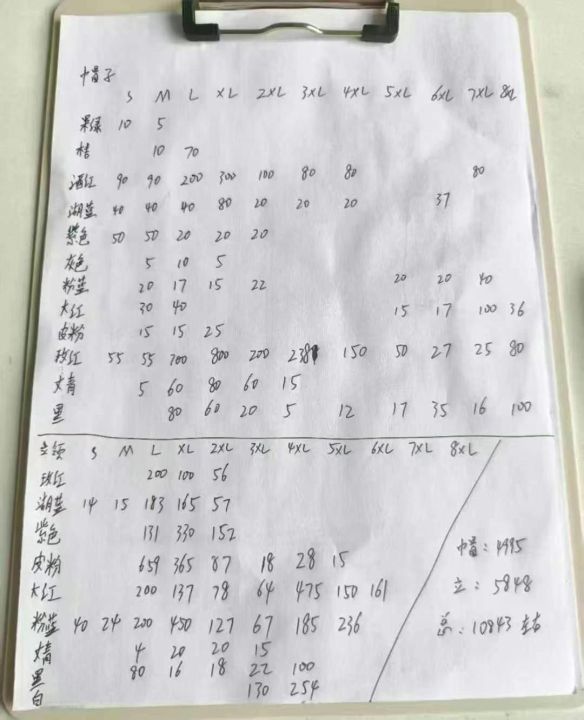 帽子
S M L XL 2XL 3XL 4XL 5XL 6XL 7XL 8XL
果绿 10 5
桔 10 70
酒红 90 90 200 300 100 80 80 80
湖蓝 40 40 40 80 20 20 20 37
紫色 50 50 20 20 20
灰色 5 10 5
粉蓝 20 17 15 22 20 20 40
大红 30 40 15 17 100 36
皮粉 15 15 25
玫红 55 55 700 800 200 238 150 50 27 25 80
丈青 5 60 80 60 15
黑 80 60 20 5 12 17 35 16 100
立领 S M L XL 2XL 3XL 4XL 5XL 6XL 7XL 8XL
玫红 200 100 56
湖蓝 14 15 183 165 57
紫色 131 330 152
皮粉 659 365 87 18 28 15
大红 200 137 78 64 475 150 161
粉蓝 40 24 200 450 127 67 185 236
丈青 4 20 20 15
黑 80 16 18 22 100
白 130 254
帽:4995
立:5848
总:10843 左右